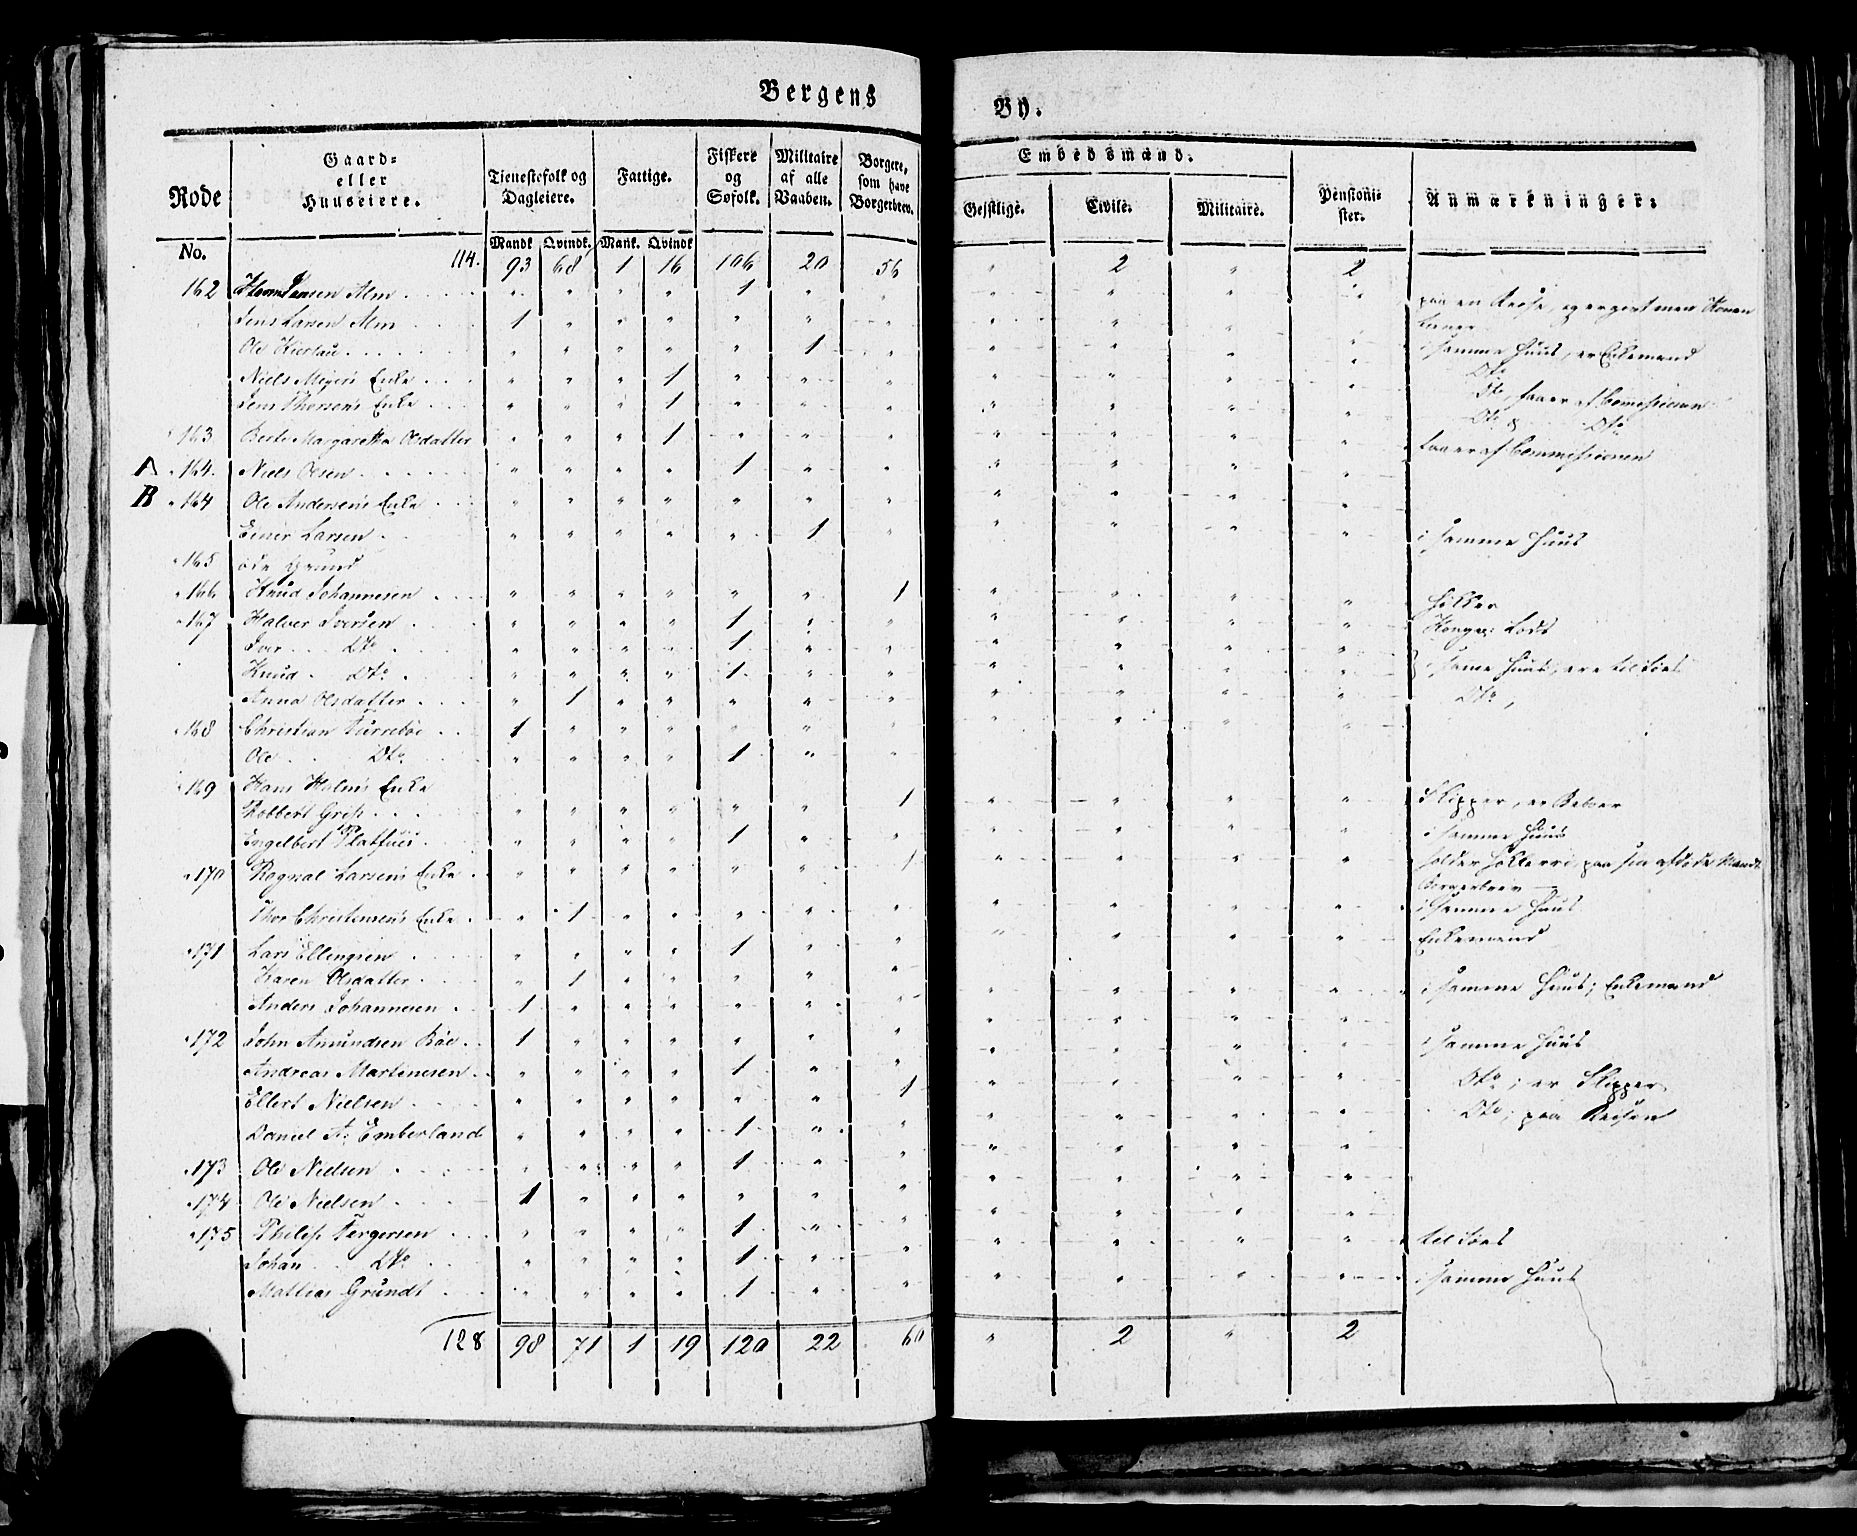 Bergens By.
Rode No.
Gaard- eller Huuseiere.
Tjenestefolk og Dagleiere. Mandk. Qvindk.
Fattige. Mank. Qvindk.
Fiskere og Søfolk.
Militaire af alle Vaaben.
Borgere, som have Borgerbrev.
Embedsmænd.
Gejstlige. Civile. Militaire.
Pensionister.
Anmærkninger.
114. 93 68 1 16 106 20 56 " 2 " 2
162 Jensen Alm 1 paa en Reise, og
Jens Larsen Alm 1 i samme Huus, er Enkemand
Ole 1 Dto
Niels Meyers Enke 1 Dto, faaer af Comissionen
Jens Thorsens Enke 1 Dto Dto
163 Berte Margaretha Olsdatter 1 faaer af Commissionen
A 164. Niels Olsen 1
B 164 Ole Andersens Enke
Einer Larsen 1 i samme Huus
165 øde Grund
166 Knud Johannesen 1 Høker
167 Halver Iversen 1 Lods
Iver Dto 1
Knud Dto 1 i same Huus, ere til Søes
Anna Olsdatter 1 Dto,
168 Christian 1
Ole Dto 1
169 Hans Holms Enke
Robbert Grip 1 Skipper, er
Engelbert Platfues 1 i samme Huus
170 Rognal Larsens Enke 1 holder Høkkerri paa sin afdøde Mands
Borgerbrev
Thor Christensens Enke 1 i samme Huus
171 Lars Ellingsen 1 Enkemand
Karen Olsdatter 1
Anders Johannesen 1 i samme Huus; Enkemand
172 John Amundsen Røe 1
Andreas Martinesen 1 i samme Huus
Ellert Nielsen 1 Dto; er Skipper
Daniel A: Emberland 1 Dto; paa Reisen
173 Ole Nielsen 1
174 Ole Nielsen 1
175 Philip 1 til Søes
Johan Dto 1
Mathias Grundt 1 i samme Huus
128 98 71 1 19 120 22 60 " 2 " 2